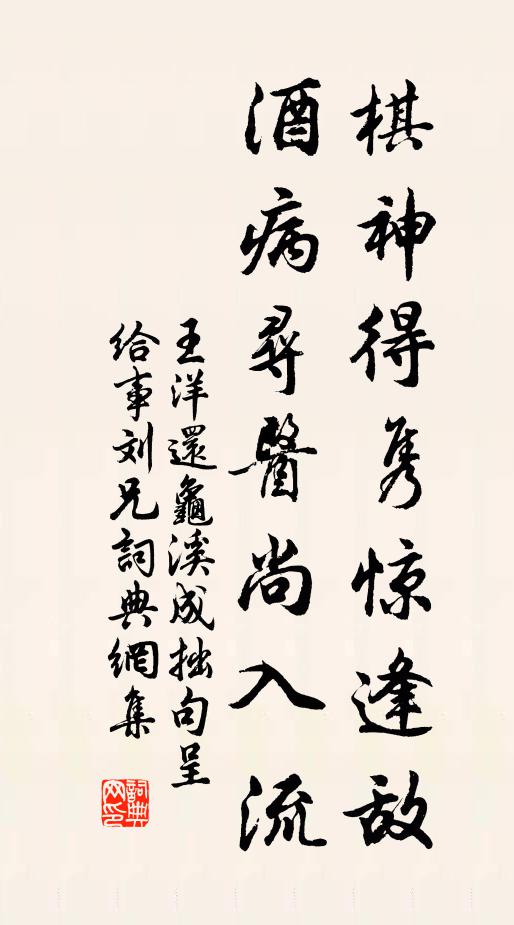 棋神得隽惊逢敌
酒病尋醫尚入流
王洋還龜溪成拙句呈
给事刘兄詞典網集
詞典网印